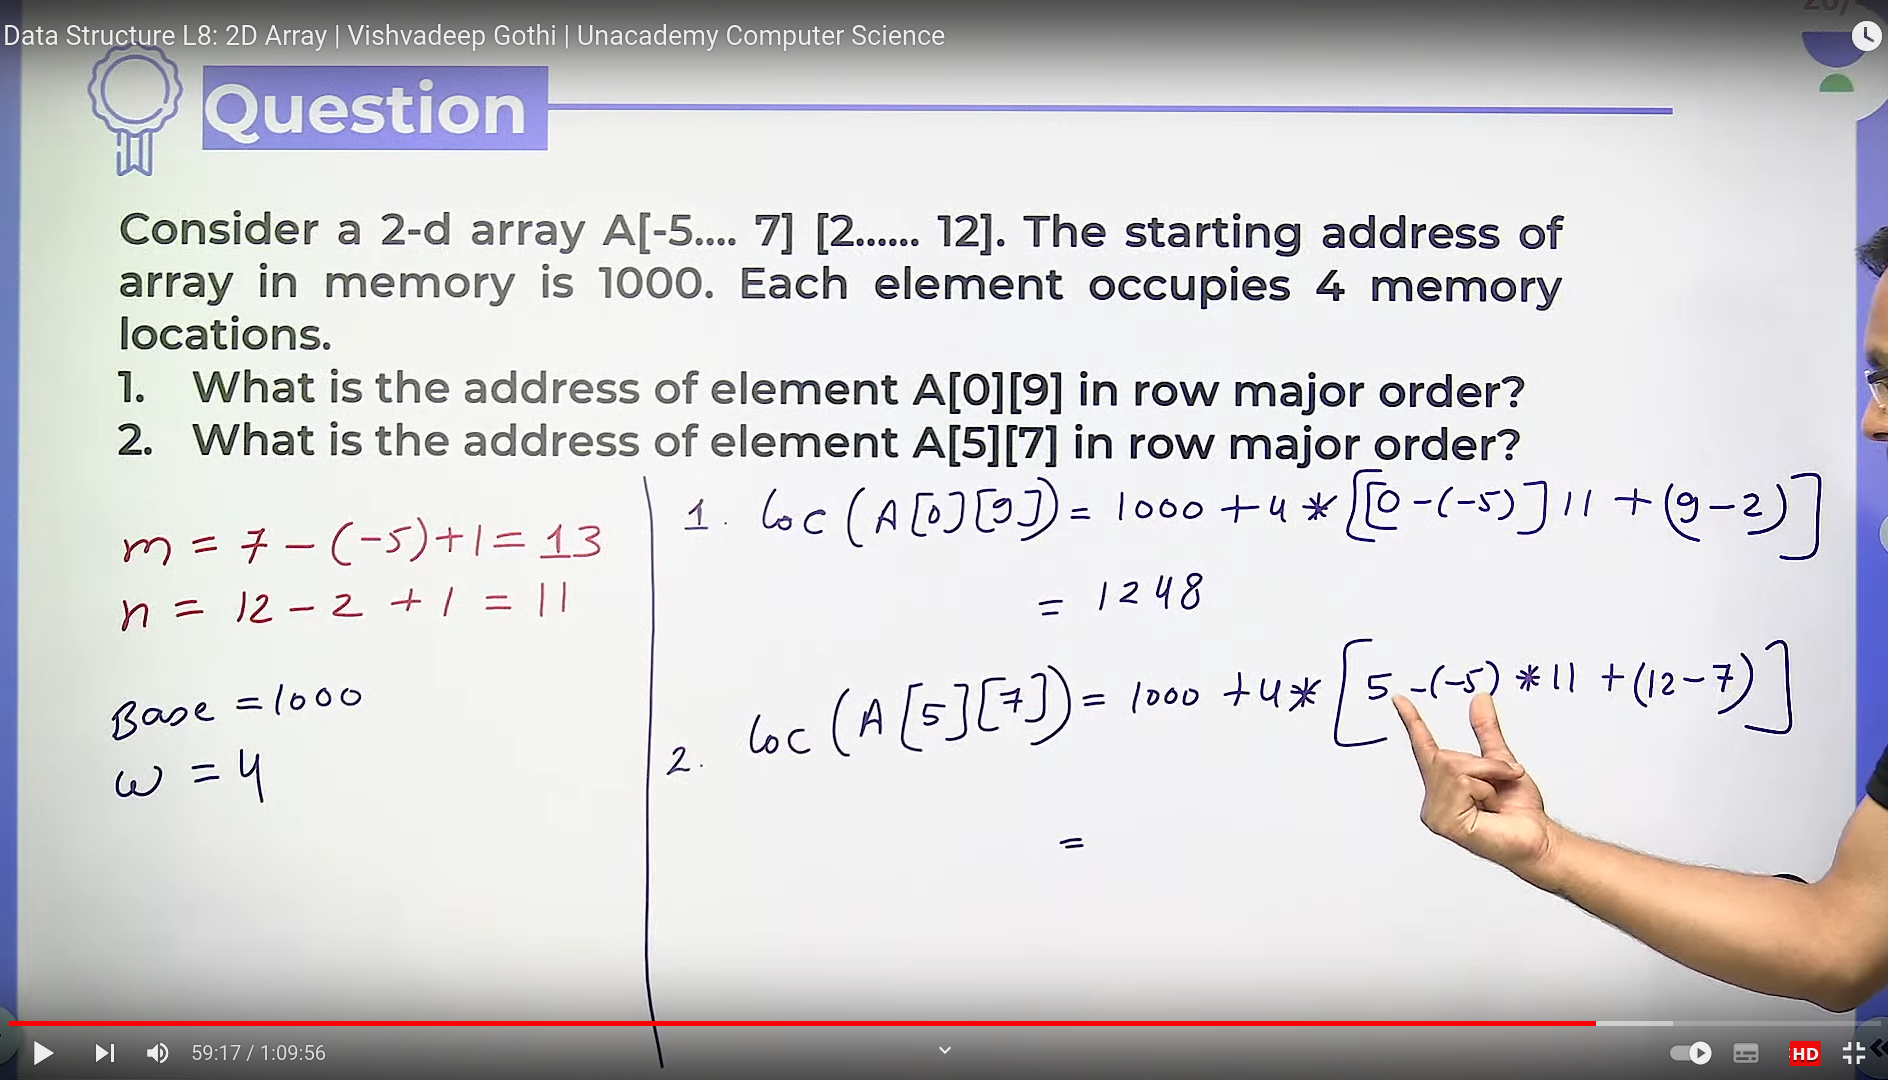 Data Structure L8: 2D Array | Vishvadeep Gothi | Unacademy Computer Science
Question
Consider a 2-d array A[-5.... 7] [2...... 12]. The starting address of
array in memory is 1000. Each element occupies 4 memory
locations.
1. What is the address of element A[0][9] in row major order?
2. What is the address of element A[5][7] in row major order?
m = 7 - (-5) + 1 = 13
n = 12 - 2 + 1 = 11
Base = 1000
w = 4
1. loc (A[0][9]) = 1000 + 4 * [[0 - (-5)] 11 + (9 - 2)]
= 1248
2. loc (A[5][7]) = 1000 + 4 * [5 - (-5) * 11 + (12 - 7)]
=
59:17 / 1:09:56
HD